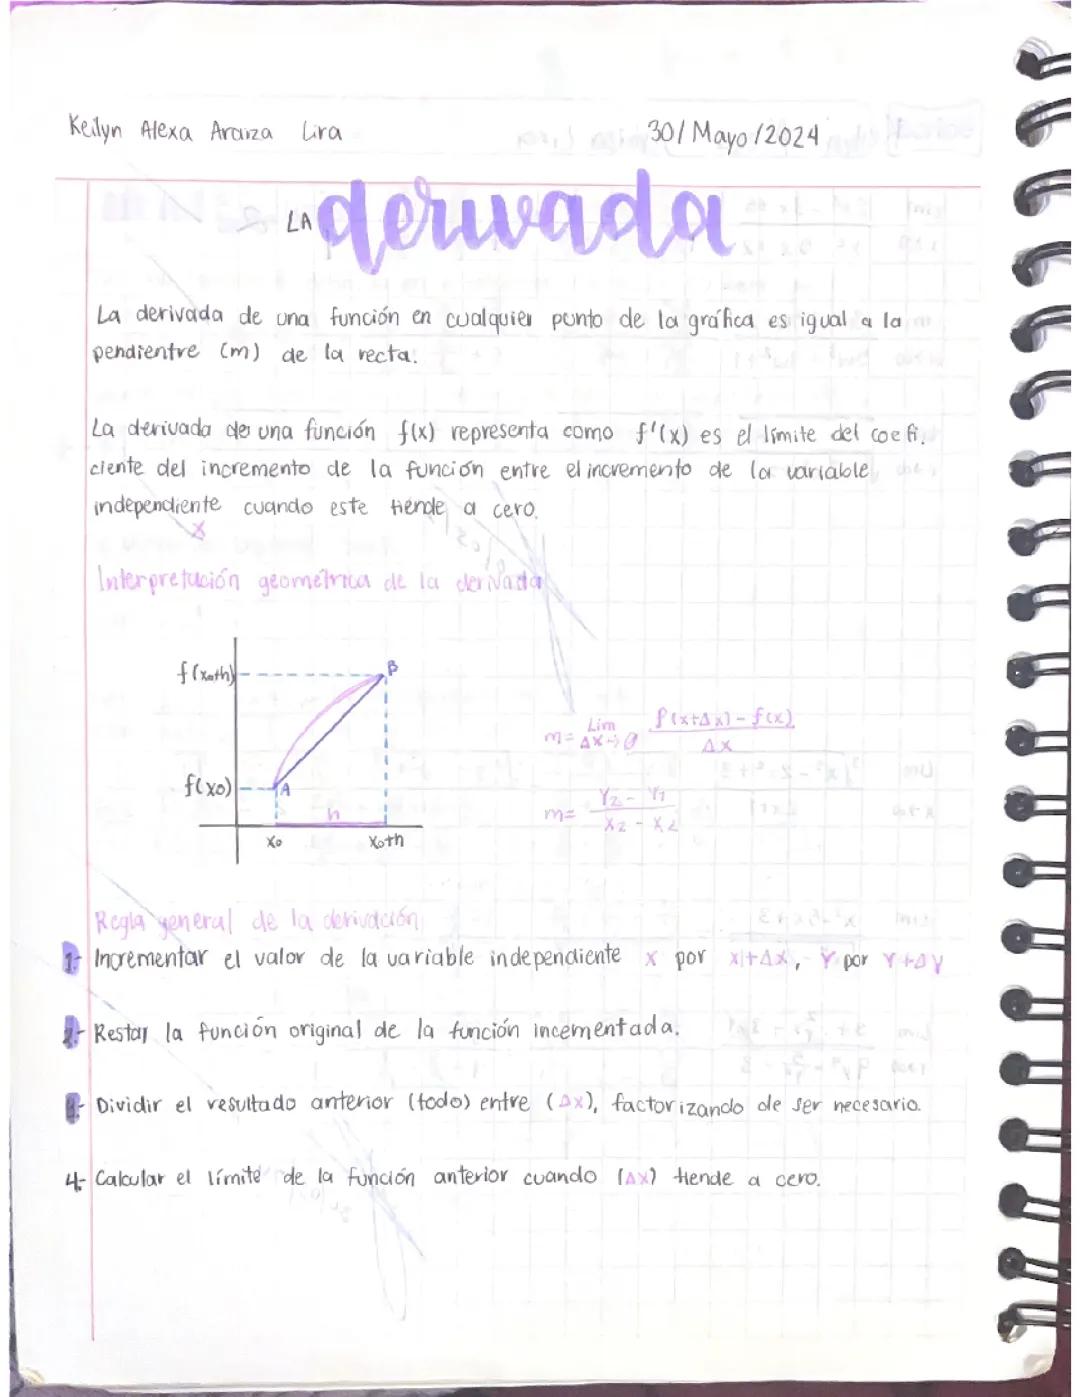 Keilyn Alexa Araiza Lira 30/Mayo/2024
LA derivada
La derivada de una función en cualquier punto de la gráfica es igual a la
pendientre (m) de la recta.
La derivada de una función f(x) representa como f'(x) es el límite del coefi.
ciente del incremento de la función entre el incremento de la variable
independiente cuando este tiende a cero.
x
Interpretución geométrica de la derivada
f(x₀+h) B
m= Lim Δx→0 f(x+Δx)-f(x) / Δx
f(x₀) A
h
m= Y₂ - Y₁ / X₂ - X₂
x₀ x₀+h
Regla general de la derivación
1- Incrementar el valor de la variable independiente x por x+Δx, Y por Y+ΔY
2- Restar la función original de la función incementada.
3- Dividir el resultado anterior (todo) entre (Δx), factorizando de ser necesario.
4- Calcular el límite de la función anterior cuando (Δx) tiende a cero.